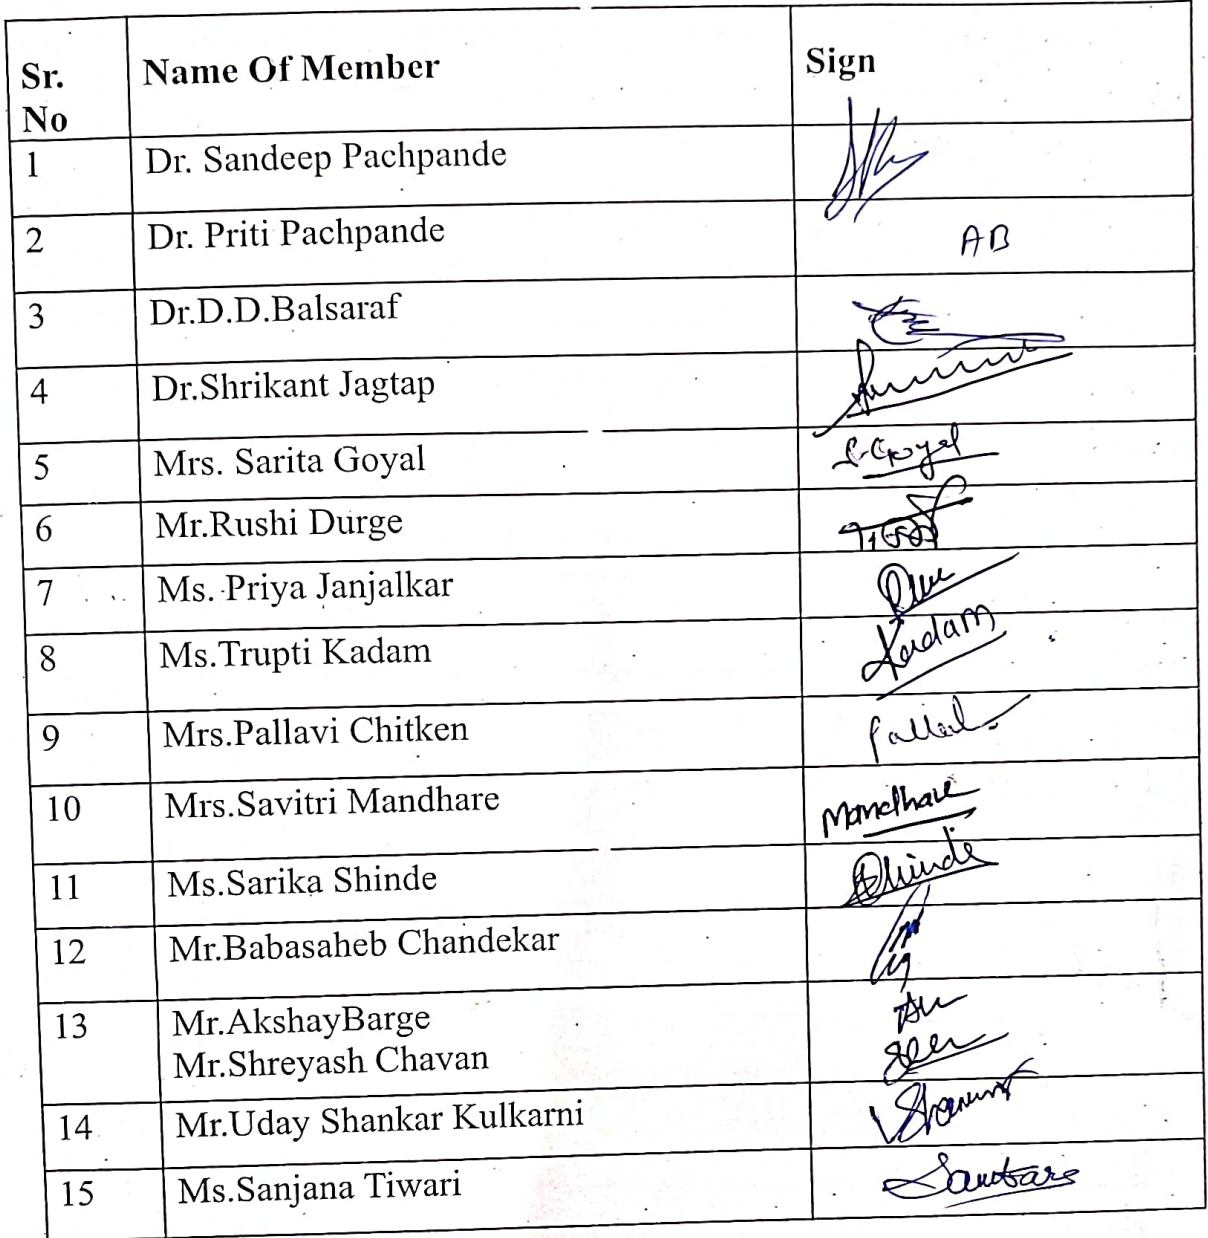 Sr. No Name Of Member Sign
1 Dr. Sandeep Pachpande
2 Dr. Priti Pachpande AB
3 Dr.D.D.Balsaraf
4 Dr.Shrikant Jagtap
5 Mrs. Sarita Goyal S.Goyal
6 Mr.Rushi Durge
7 Ms. Priya Janjalkar
8 Ms.Trupti Kadam Kadam
9 Mrs.Pallavi Chitken
10 Mrs.Savitri Mandhare Mandhare
11 Ms.Sarika Shinde Shinde
12 Mr.Babasaheb Chandekar
13 Mr.AkshayBarge
Mr.Shreyash Chavan
14 Mr.Uday Shankar Kulkarni
15 Ms.Sanjana Tiwari